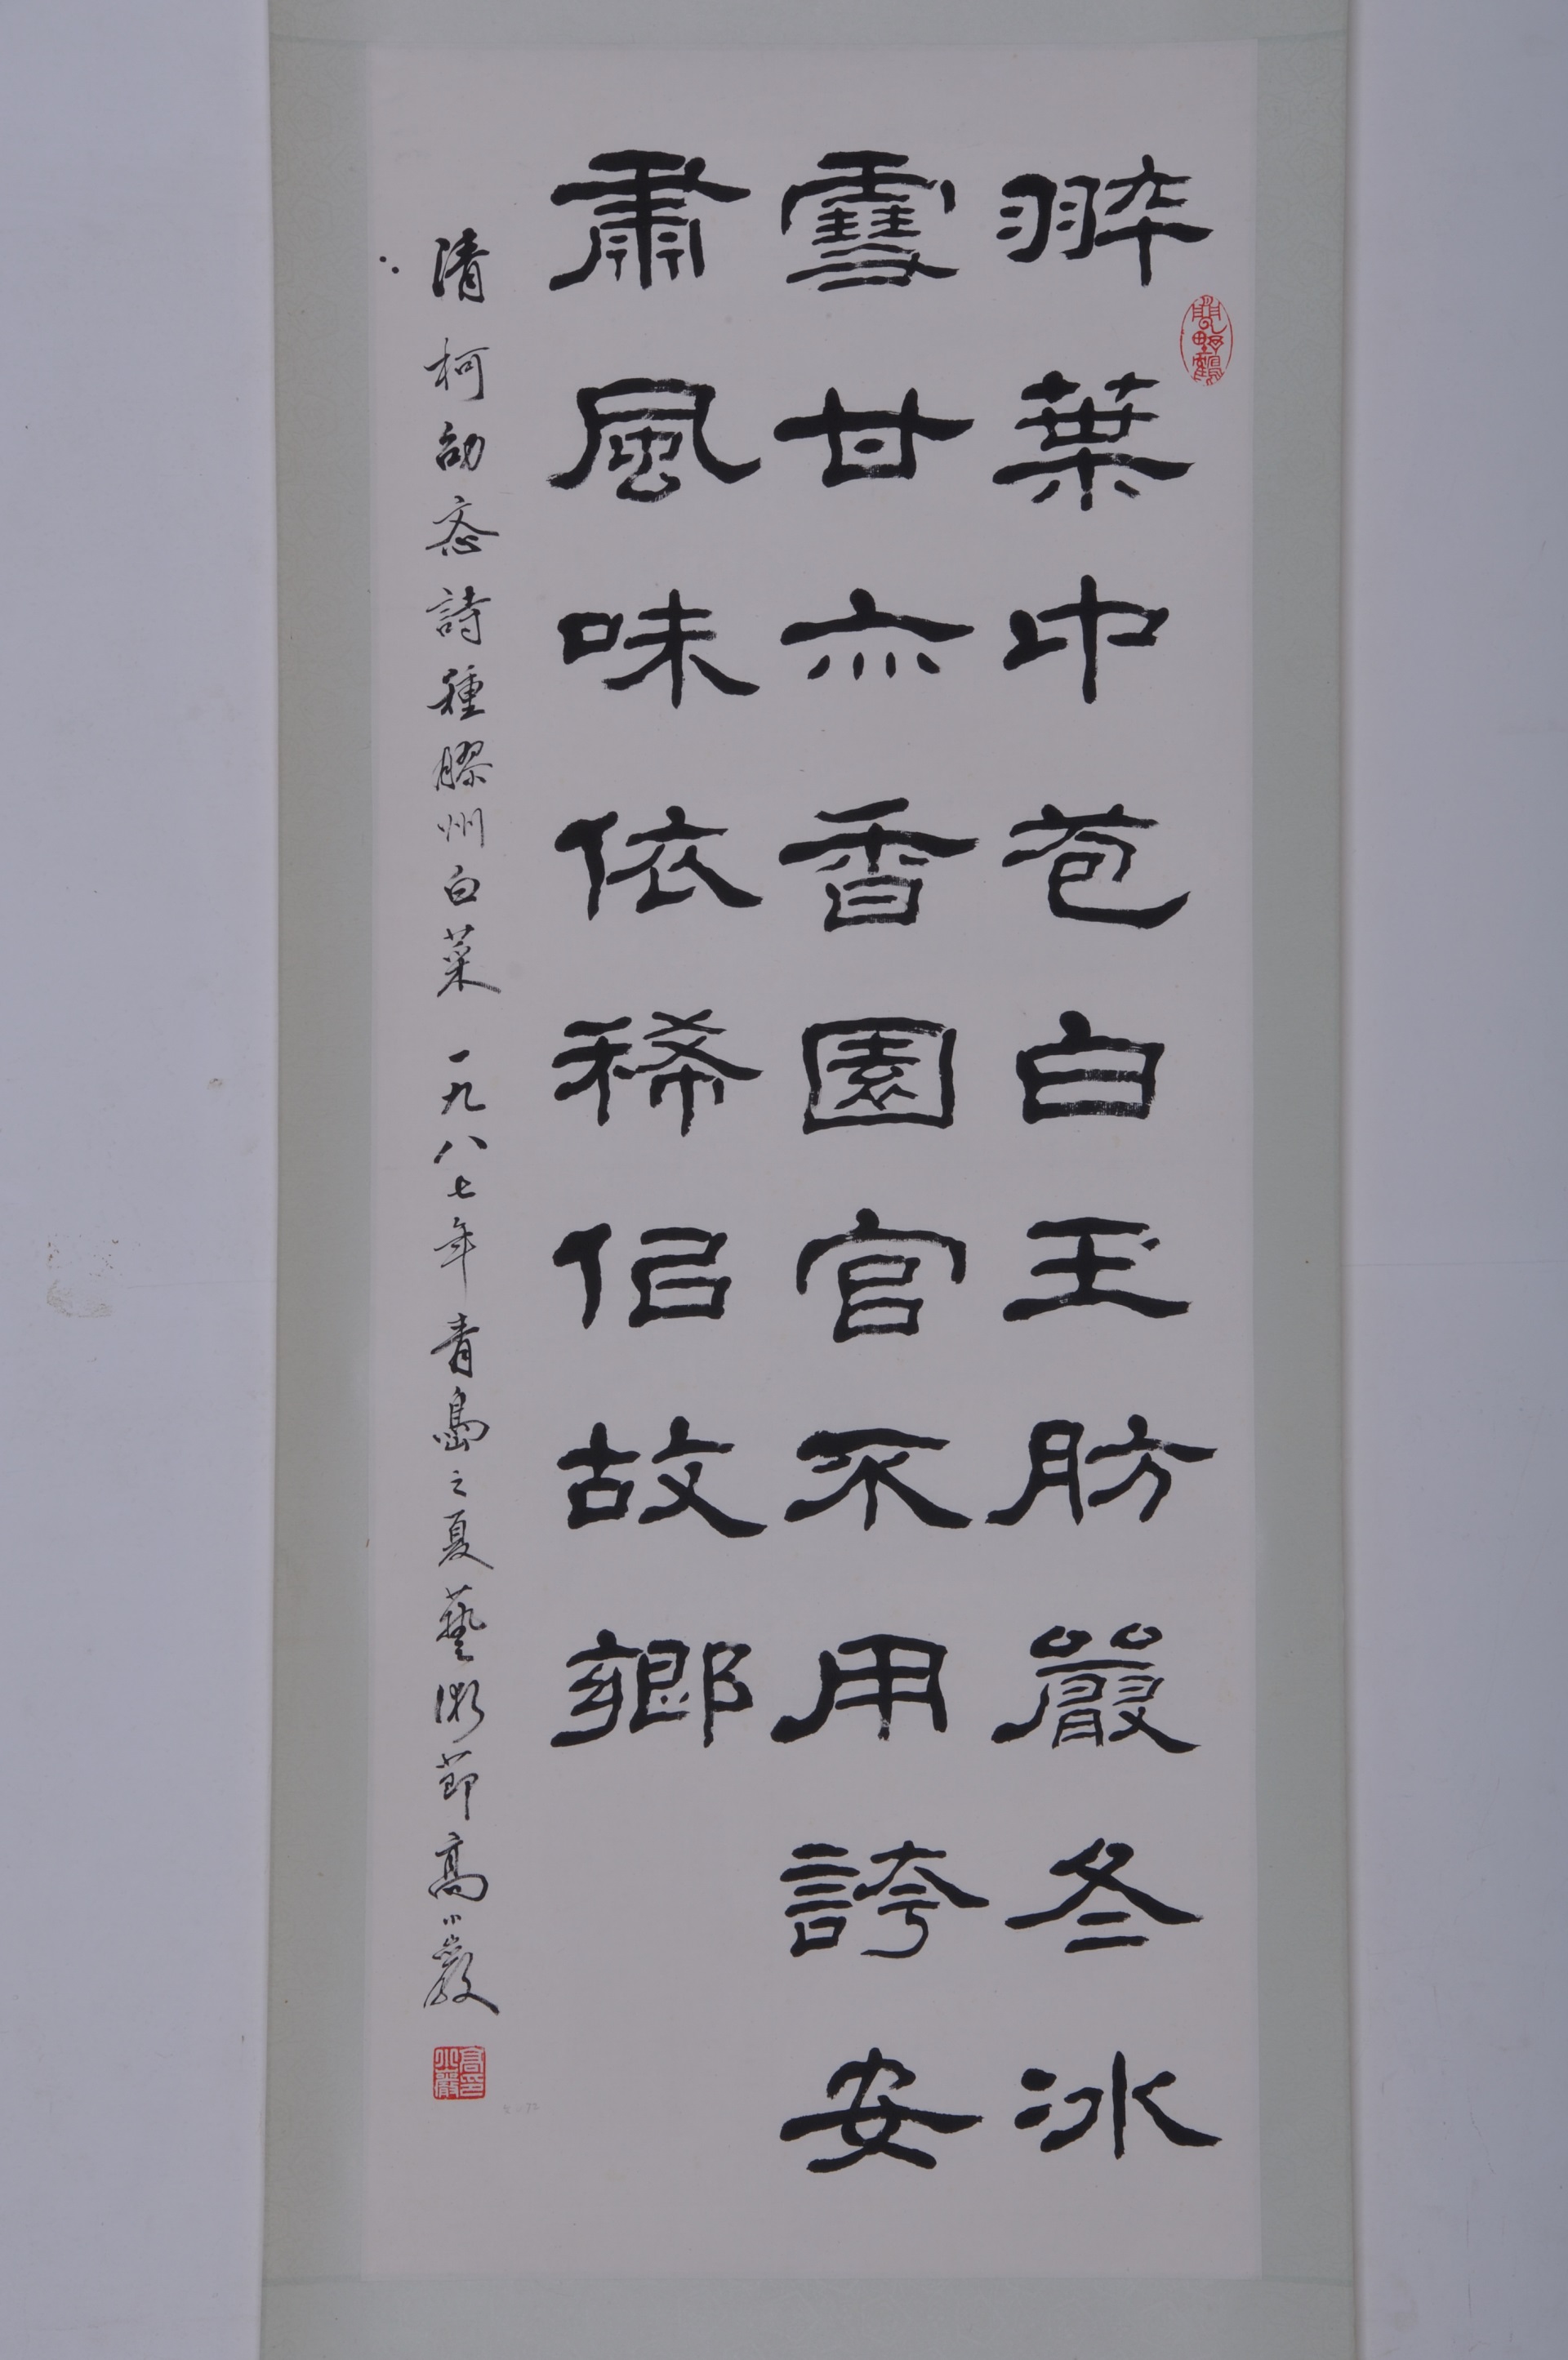 翠葉中苞白玉肪嚴冬冰
雪甘亦香園官不用誇安
肅風味依稀佀故鄉
清柯劭忞詩種膠州白菜 一九八七年青島之夏藝術節高小巖
高小巖印